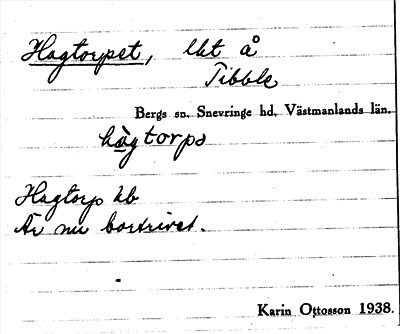 Hagtorpet, lht å
Tibble
Bergs sn. Snevringe hd. Västmanlands län.
hàgtorpə
Hagtorp hb
Är nu bortrivet.
Karin Ottosson 1938.